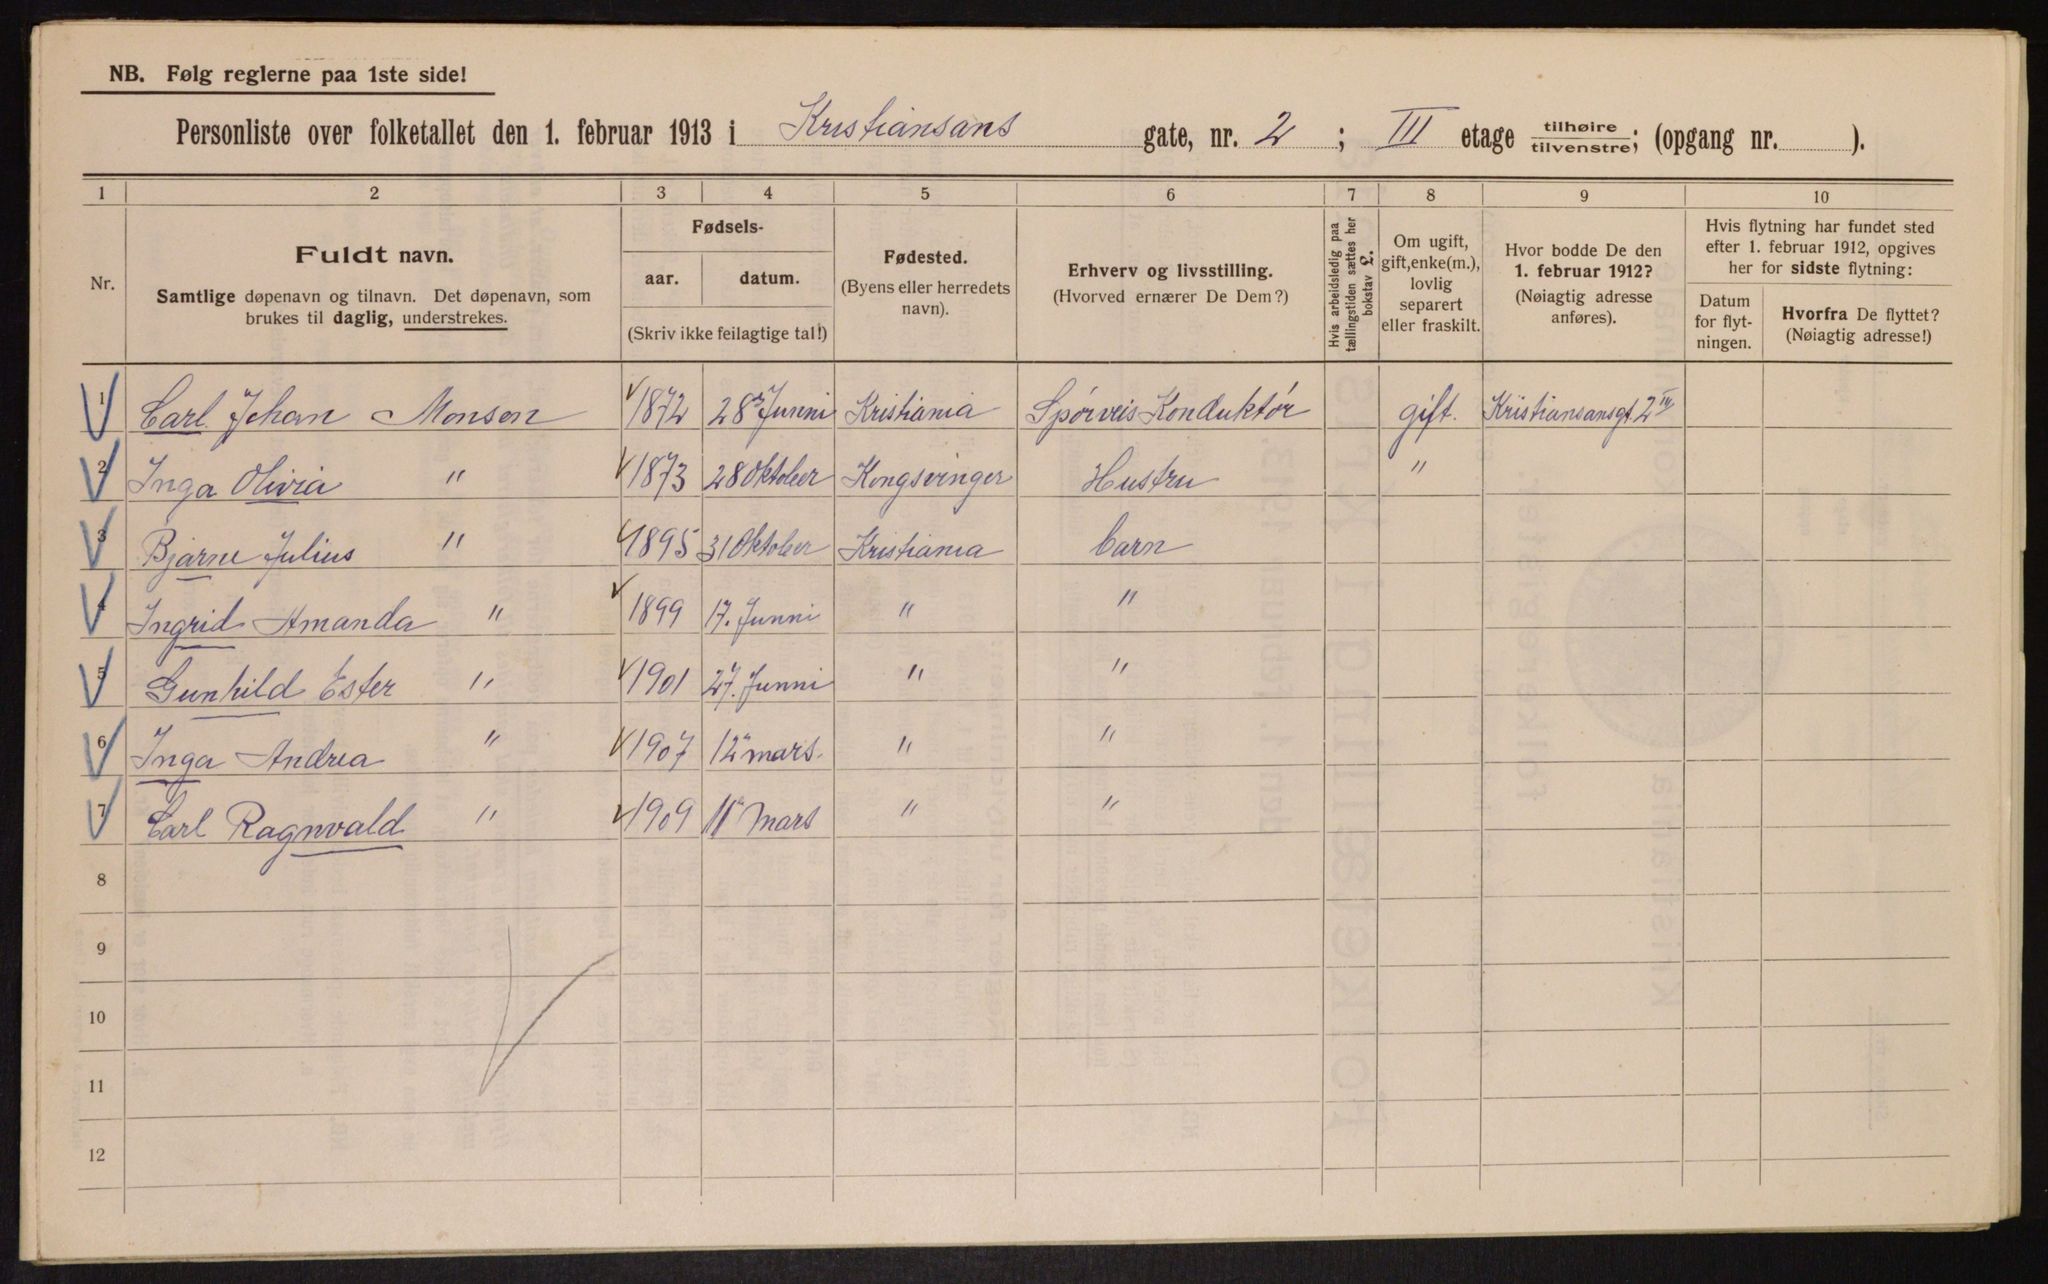 NB. Følg reglerne paa 1ste side!
Personliste over folketallet den 1. februar 1913 i Kristiansans gate, nr. 2 ; III etage tilhøire / tilvenstre; (opgang nr. ).
1 2 3 4 5 6 7 8 9 10
Nr.
Fuldt navn.
Samtlige døpenavn og tilnavn. Det døpenavn, som
brukes til daglig, understrekes.
Fødsels-
aar. datum.
(Skriv ikke feilagtige tal!)
Fødested.
(Byens eller herredets
navn).
Erhverv og livsstilling.
(Hvorved ernærer De Dem?)
Hvis arbeidsledig paa
tællingstiden sættes her
bokstav L.
Om ugift,
gift, enke(m.),
lovlig
separert
eller fraskilt.
Hvor bodde De den
1. februar 1912?
(Nøiagtig adresse
anføres).
Hvis flytning har fundet sted
efter 1. februar 1912, opgives
her for sidste flytning:
Datum
for flyt-
ningen.
Hvorfra De flyttet?
(Nøiagtig adresse!)
1 Carl Johan Monsen 1872 28 Junni Kristiania Spórveis Konduktór gift. Kristiansansgt. 2 III
2 Inga Olivia " 1873 28 Oktober Kongsvinger Hustru "
3 Bjarne Julius " 1895 31 Oktober Kristiania barn
4 Ingrid Amanda " 1899 17. Junni " "
5 Gunhild Ester " 1901 27. Junni " "
6 Inga Andrea " 1907 12 mars. " "
7 Carl Ragnvald " 1909 11 Mars " "
8
9
10
11
12